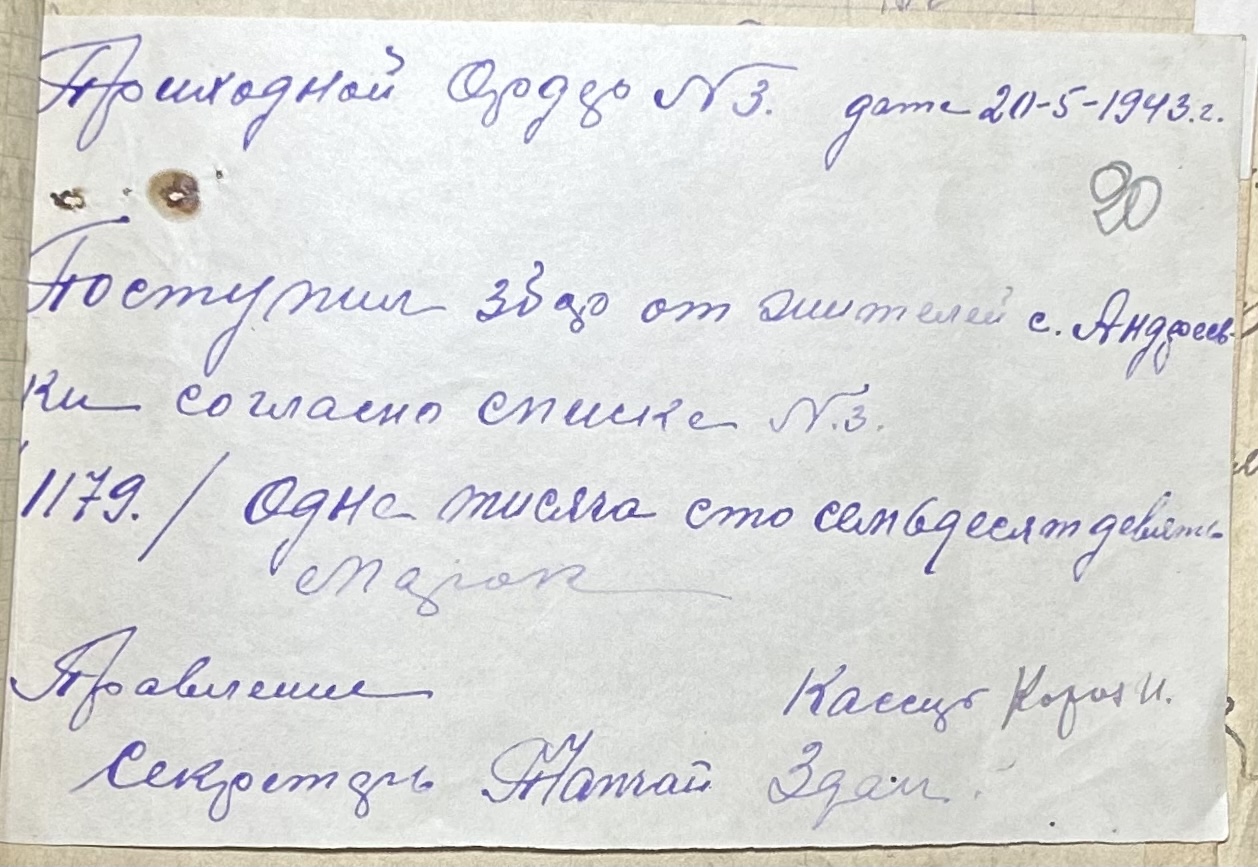 Приходной Ордер №3. дата 20-5-1943.г.
20
Поступил збор от жителей с. Андреев-
ки согласно списка N.3.
1179. / Одна тисяча сто семьдесят девять
марок
Правление Кассир
Секретарь Папчай